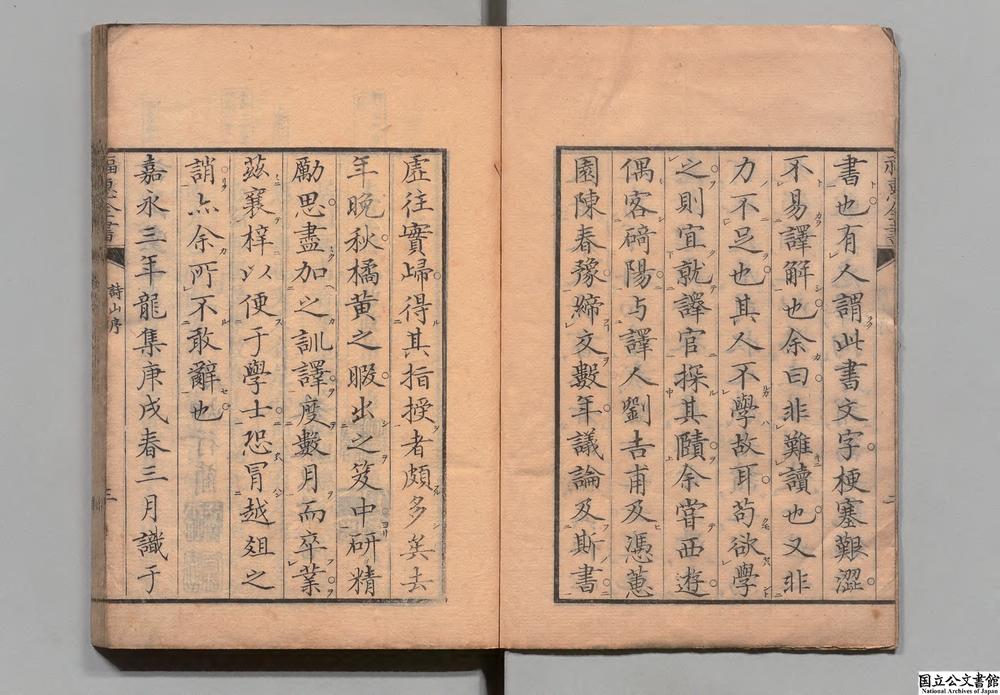 書也有人謂此書文字梗塞艱澀
不易譯解也余曰非難讀也又非
力不足也其人不學故耳苟欲學
之則宜就譯官探其賾余嘗西遊
偶客碕陽与譯人劉吉甫及馮蕙
園陳春豫締文數年議論及斯書
虛往實歸得其指授者頗多矣去
年晚秋橘黄之暇出之笈中研精
勵思盡加之訓譯度數月而卒業
茲襄梓以便于學士恐冒越爼之
誚亦余所不敢辭也
嘉永三年龍集庚戌春三月識于
福惠全書
詩山序
三
福惠全書
二
国立公文書館
National Archives of Japan